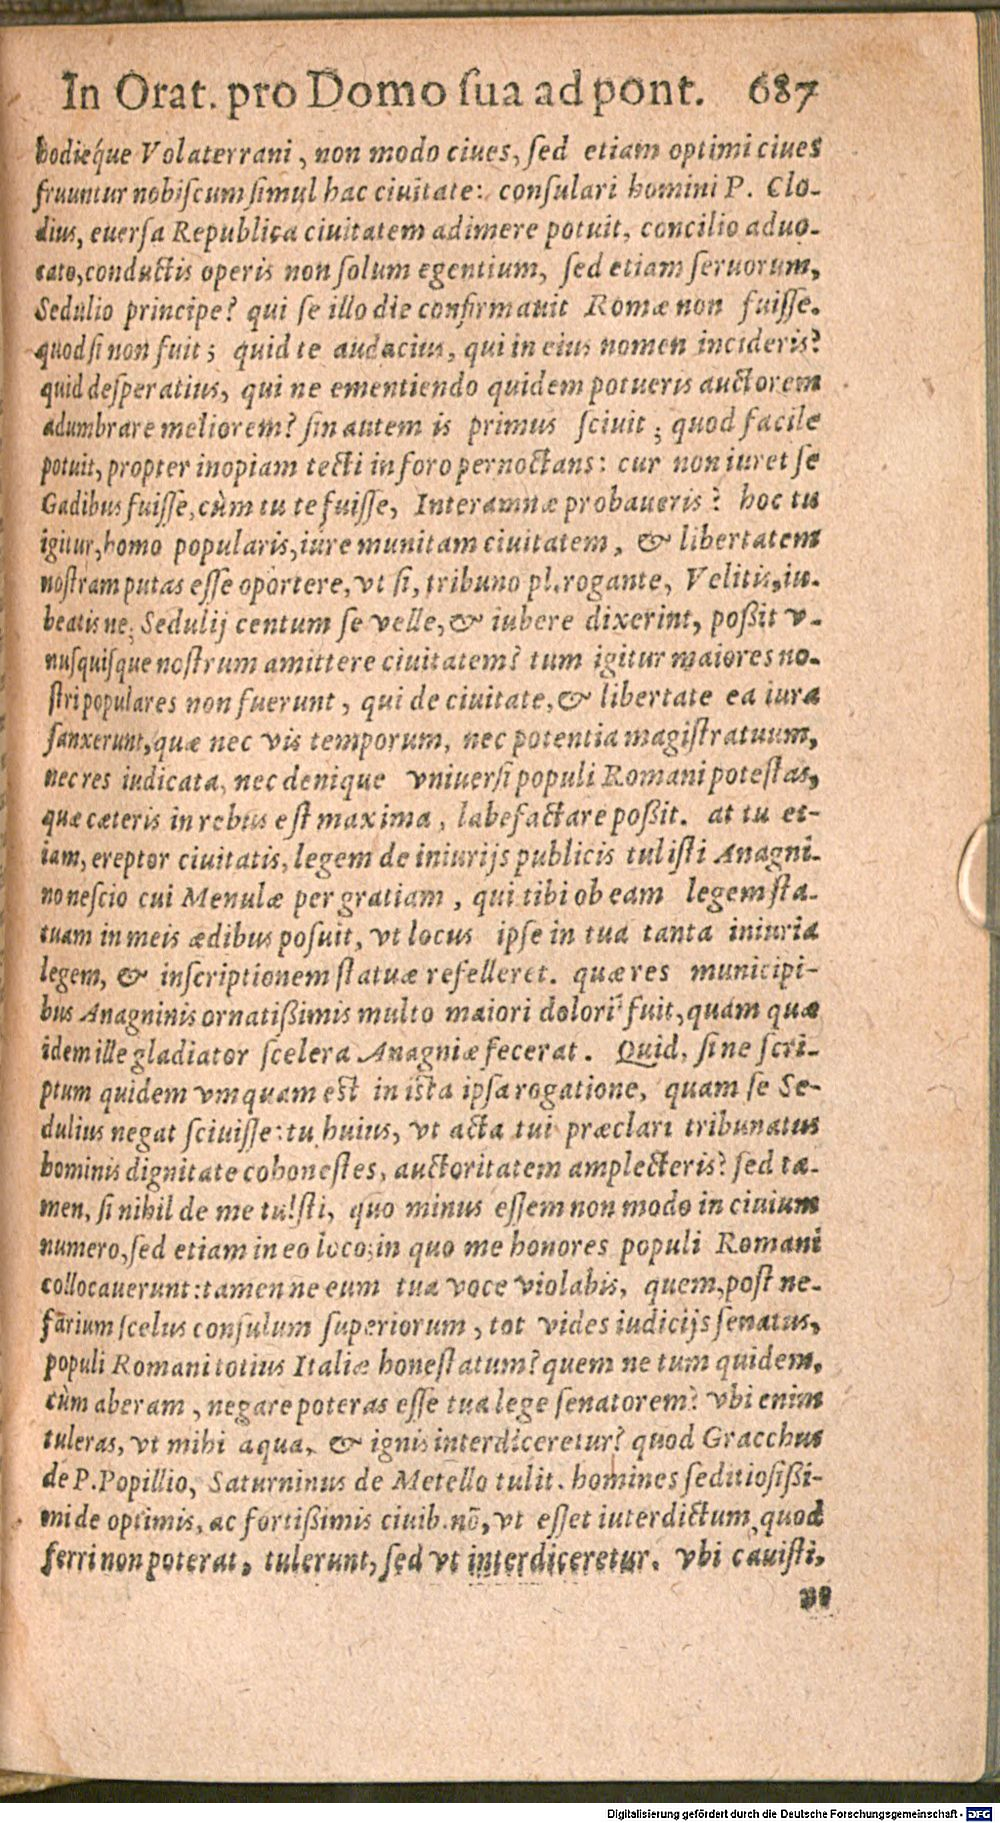 In Orat. pro Domo ſua ad pont. 687
hodieq́ue Volaterrani, non modo ciues, ſed etiam optimi ciues
fruuntur nobiſcum ſimul hac ciuitate: conſulari homini P. Clo-
dius, euerſa Republica ciuitatem adimere potuit, concilio aduo-
cato, conductis operis non ſolum egentium, ſed etiam ſeruorum,
Sedulio principe? qui ſe illo die confirmauit Romæ non fuiſſe.
quod ſi non fuit; quid te audacius, qui in eius nomen incideris?
quid deſperatius, qui ne ementiendo quidem potueris auctorem
adumbrare meliorem? ſin autem is primus ſciuit; quod facile
potuit, propter inopiam tecti in foro pernoctans: cur non iuret ſe
Gadibus fuiſſe, cùm tu te fuiſſe, Interamnæ probaueris? hoc tu
igitur, homo popularis, iure munitam ciuitatem, & libertatem
noſtram putas eſſe oportere, vt ſi, tribuno pl. rogante, Velitis, iu-
beatis ne; Sedulij centum ſe velle, & iubere dixerint, poßit v-
nuſquiſque noſtrum amittere ciuitatem? tum igitur maiores no-
ſtri populares non fuerunt, qui de ciuitate, & libertate ea iura
ſanxerunt, quæ nec vis temporum, nec potentia magiſtratuum,
nec res iudicata, nec denique vniuerſi populi Romani poteſtas,
quæ cæteris in rebus eſt maxima, labefactare poßit. at tu et-
iam, ereptor ciuitatis, legem de iniurijs publicis tuliſti Anagni-
no neſcio cui Menulæ per gratiam, qui tibi ob eam legem ſta-
tuam in meis ædibus poſuit, vt locus ipſe in tua tanta iniuria
legem, & inſcriptionem ſtatuæ refelleret. quæ res municipi-
bus Anagninis ornatißimis multo maiori dolori fuit, quàm quæ
idem ille gladiator ſcelera Anagniæ fecerat. Quid, ſi ne ſcri-
ptum quidem vmquam eſt in iſta ipſa rogatione, quam ſe Se-
dulius negat ſciuiſſe: tu huius, vt acta tui præclari tribunatus
hominis dignitate cohoneſtes, auctoritatem amplecteris? ſed ta-
men, ſi nihil de me tulſti, quo minus eſſem non modo in ciuium
numero, ſed etiam in eo loco, in quo me honores populi Romani
collocauerunt: tamen ne eum tua voce violabis, quem, poſt ne-
farium ſcelus conſulum ſuperiorum, tot vides iudicijs ſenatus,
populi Romani totius Italiæ honeſtatum? quem ne tum quidem,
cùm aberam, negare poteras eſſe tua lege ſenatorem? vbi enim
tuleras, vt mihi aqua, & ignis interdiceretur? quod Gracchus
de P. Popillio, Saturninus de Metello tulit. homines ſeditioſißi-
mi de optimis, ac fortißimis ciuib. nō, vt eſſet interdictum, quod
ferri non poterat, tulerunt, ſed vt interdiceretur. vbi cauiſti,
Digitalisierung gefördert durch die Deutsche Forschungsgemeinschaft - DFG